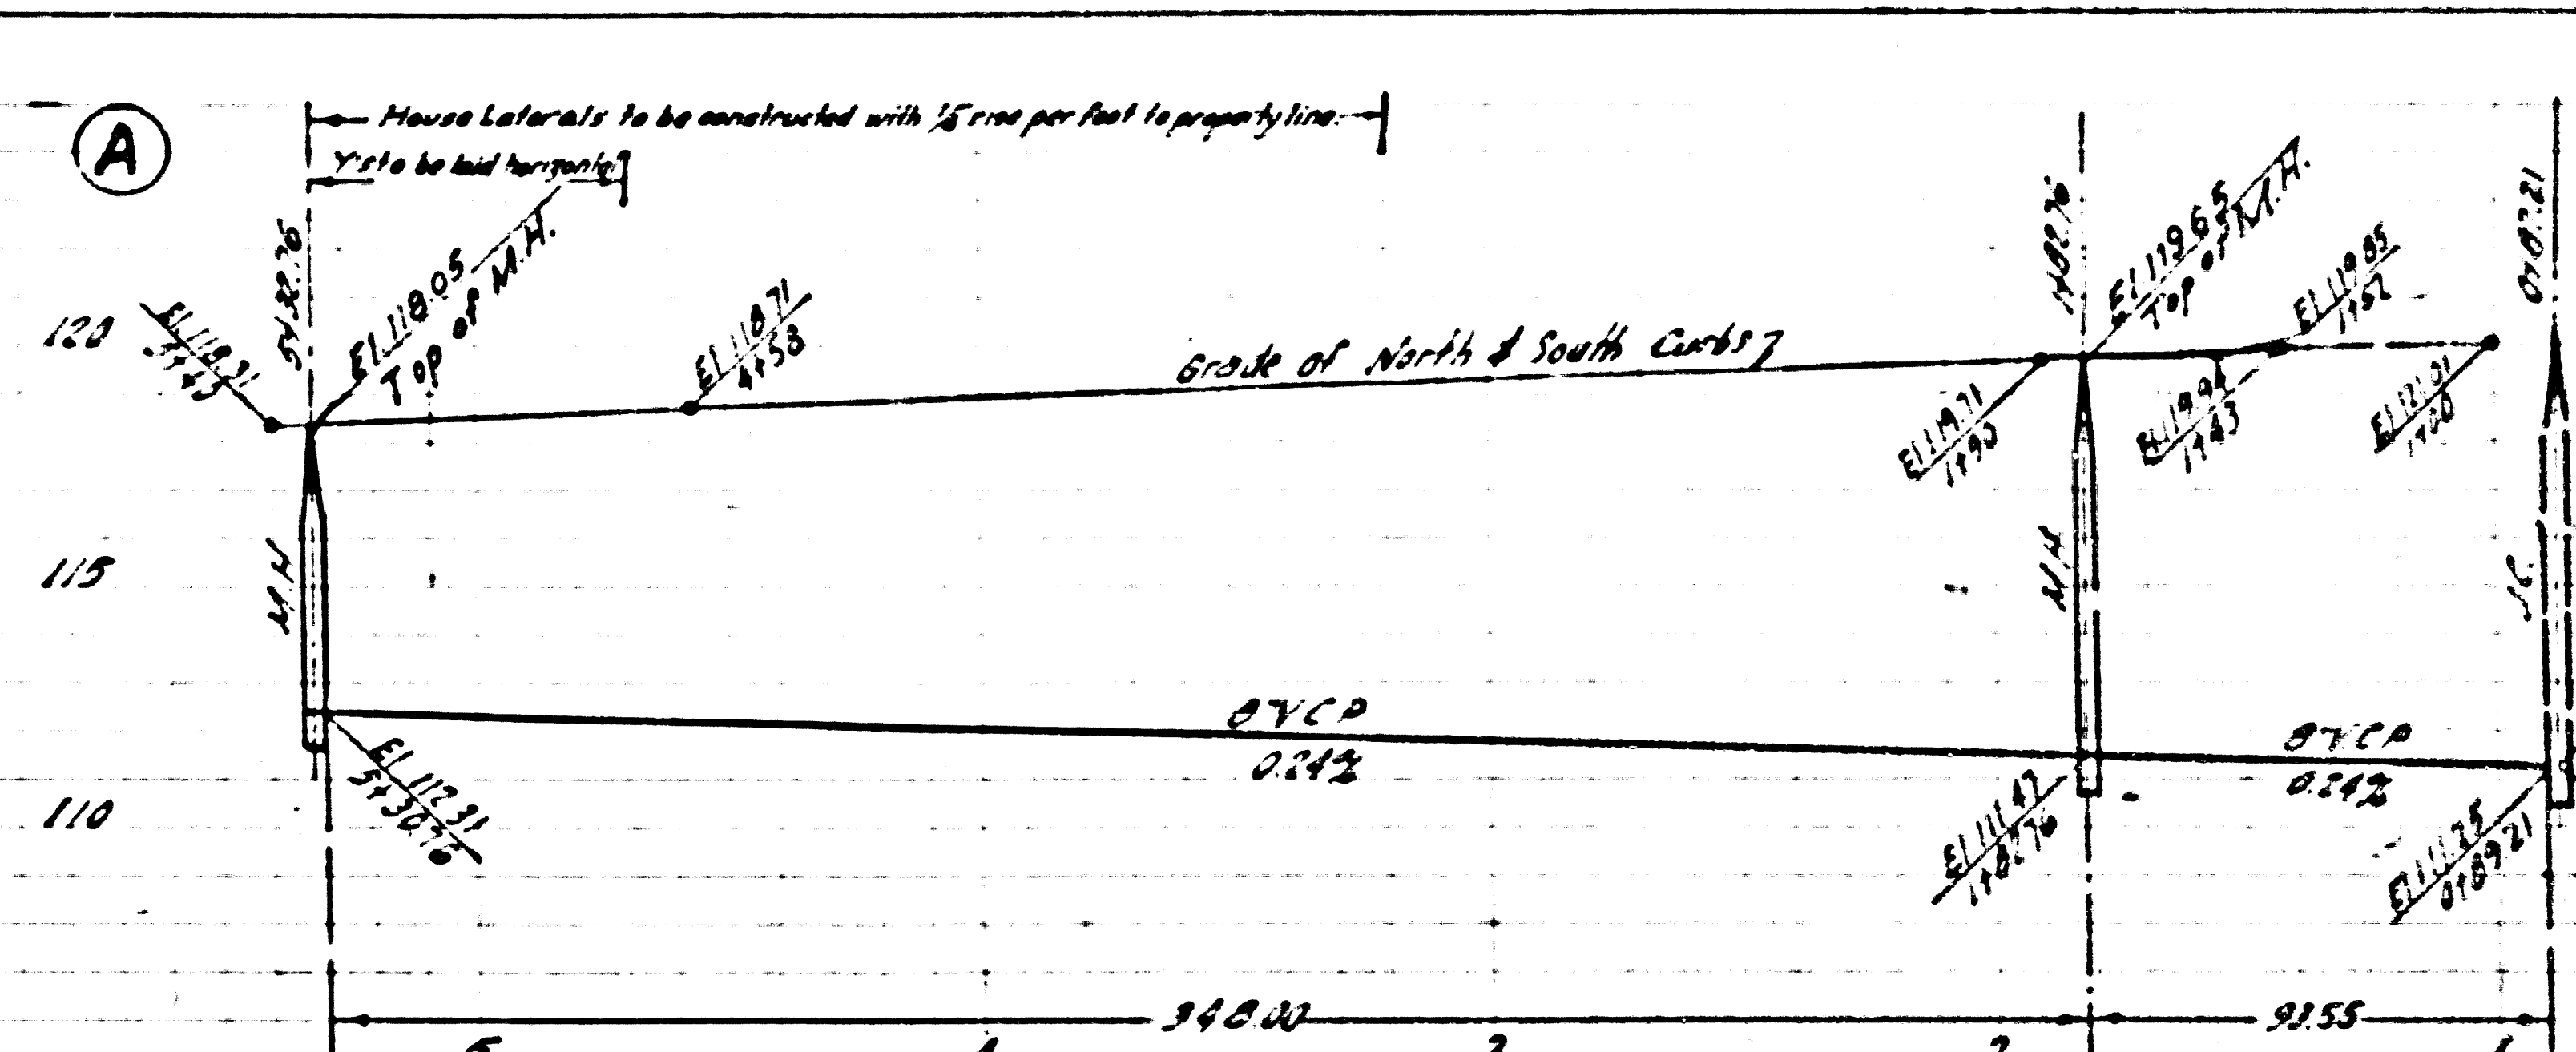 A
House Laterals to be constructed with 1/8 rise per foot to property line.
Y's to be laid horizontal
5+32.76
El. 118.05
Top of M.H.
El. 118.71
4+58
Grade of North & South Curbs
1+82.76
El. 119.65
Top of M.H.
El. 119.85
1+52
El. 119.71
1+90
1+43
El. 121.01
120
115
110
M.H.
M.H.
8" V.C.P.
0.24%
8" V.C.P.
0.24%
El. 112.31
5+30.76
El. 111.47
1+82.76
El. 111.25
0+89.21
348.00
93.55
5
4
3
2
1